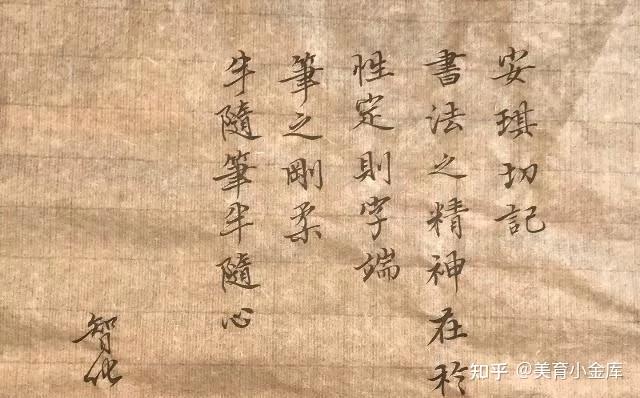 安琪切記
書法之精神在於
性定則字端
筆之剛柔
半隨筆半隨心
智
知乎 @美育小金库